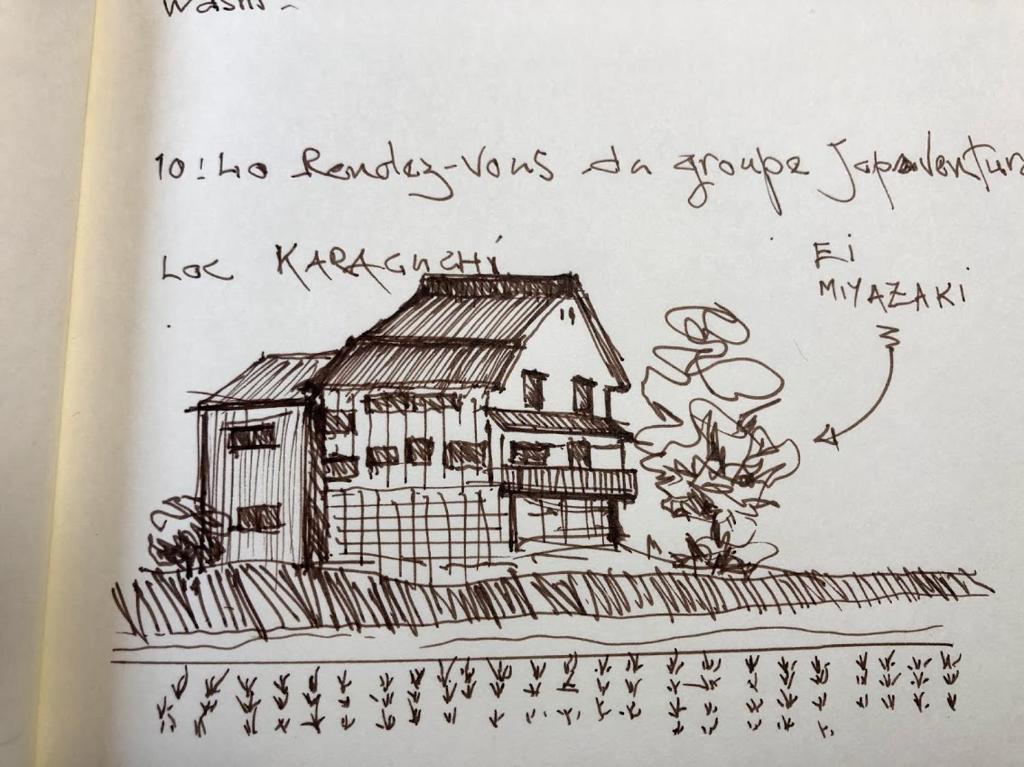 Washi.
10:40 Rendez-vous du groupe Japaventura
Loc KARAGUCHI
Ei
MIYAZAKI